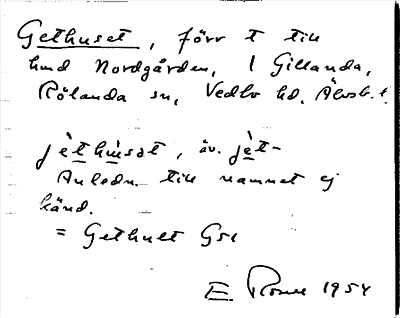 Gethuset, förr t till
hmd Nordgården, 1 Gillanda,
Rölanda sn, Vedbo hd. Älvsb. l.
jèthùsət, äv. jèt-
Anledn. till namnet ej
känd.
= Gethult GSE
E. 1954